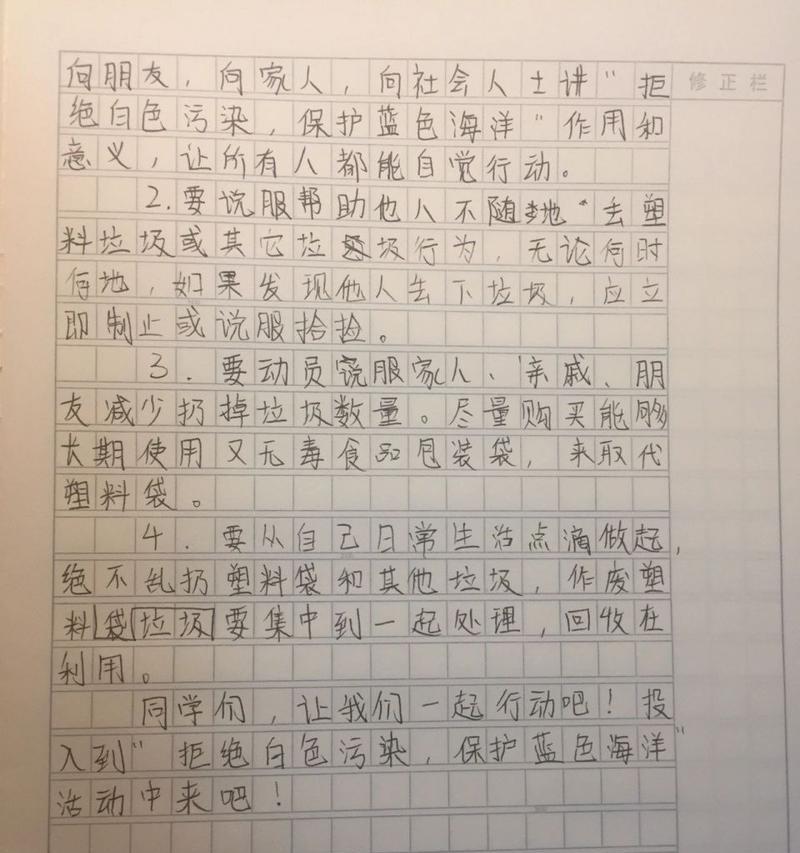 修正栏
向朋友，向家人，向社会人士讲“拒
绝白色污染，保护蓝色海洋”作用和
意义，让所有人都能自觉行动。
2.要说服帮助他人不随地“去塑
料垃圾或其它垃圾行为，无论何时
何地，如果发现他人去下垃圾，应立
即制止或说服拾捡。
3.要动员说服家人、亲戚、朋
友减少扔掉垃圾数量。尽量购买能够
长期使用又无毒食品包装袋，来取代
塑料袋。
4.要从自己日常生活点滴做起，
绝不乱扔塑料袋和其他垃圾，作废塑
料袋垃圾要集中到一起处理，回收在
利用。
同学们，让我们一起行动吧！投
入到“拒绝白色污染，保护蓝色海洋”
活动中来吧！